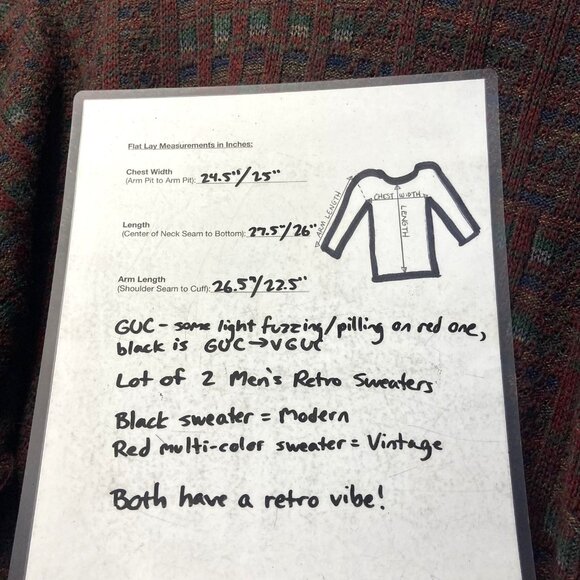 Flat Lay Measurements in Inches:
Chest Width
(Arm Pit to Arm Pit): 24.5"/25"
Length
(Center of Neck Seam to Bottom): 27.5"/26"
Arm Length
(Shoulder Seam to Cuff): 26.5"/22.5"
ARM LENGTH
CHEST WIDTH
LENGTH
GUC - some light fuzzing/pilling on red one,
black is GUC→VGUC
Lot of 2 Men's Retro Sweaters
Black sweater = Modern
Red multi-color sweater = Vintage
Both have a retro vibe!